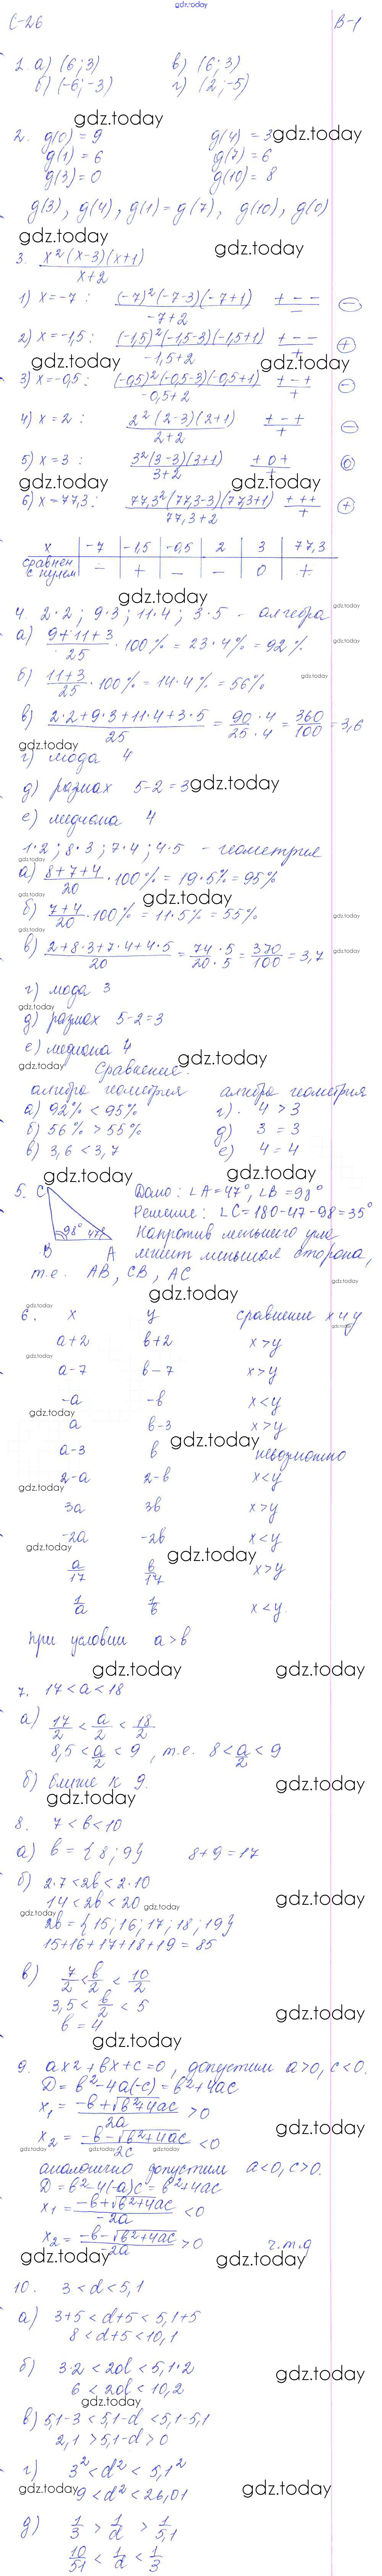 gdz.today
С-26 В-1
1. а) (6; 3) в) (6; 3)
б) (-6; -3) г) (2; -5)
gdz.today
2. g(0) = 9 g(4) = 3 gdz.today
g(1) = 6 g(7) = 6
g(3) = 0 g(10) = 8
g(3), g(4), g(1) = g(7), g(10), g(0)
gdz.today gdz.today
3. x²(x-3)(x+1) / x+2
1) x = -7 : (-7)²(-7-3)(-7+1) / -7+2 + - - / - (-)
2) x = -1,5 : (-1,5)²(-1,5-3)(-1,5+1) / -1,5+2 + - - / + (+)
gdz.today gdz.today
3) x = -0,5 : (-0,5)²(-0,5-3)(-0,5+1) / -0,5+2 + - + / + (-)
4) x = 2 : 2²(2-3)(2+1) / 2+2 + - + / + (-)
5) x = 3 : 3²(3-3)(3+1) / 3+2 + 0 + / + (0)
gdz.today gdz.today
6) x = 77,3 : 77,3²(77,3-3)(77,3+1) / 77,3+2 + + + / + (+)
x | -7 | -1,5 | -0,5 | 2 | 3 | 77,3
сравнен с нулем | - | + | - | - | 0 | +
gdz.today gdz.today
4. 2·2; 9·3; 11·4; 3·5 - алгебра
а) 9+11+3 / 25 · 100% = 23·4% = 92% gdz.today
б) 11+3 / 25 · 100% = 14·4% = 56% gdz.today
в) 2·2+9·3+11·4+3·5 / 25 = 90·4 / 25·4 = 360 / 100 = 3,6
gdz.today
г) мода 4
д) размах 5-2=3 gdz.today
е) медиана 4
1·2; 8·3; 7·4; 4·5 - геометрия
gdz.today
а) 8+7+4 / 20 · 100% = 19·5% = 95%
gdz.today gdz.today
б) 7+4 / 20 · 100% = 11·5% = 55% gdz.today
gdz.today
в) 2+8·3+7·4+4·5 / 20 = 74·5 / 20·5 = 370 / 100 = 3,7 gdz.today
г) мода 3
gdz.today
д) размах 5-2=3
е) медиана 4 gdz.today
gdz.today Сравнение:
алгебра геометрия алгебра геометрия
а) 92% < 95% г). 4 > 3
б) 56% > 55% д) 3 = 3
в) 3,6 < 3,7 е) 4 = 4
gdz.today gdz.today
5. C Дано: ∠A = 47°, ∠B = 98°
Решение: ∠C = 180-47-98 = 35°
98° 47° Напротив меньшего угла
B A лежит меньшая сторона,
т.е. AB, CB, AC gdz.today
gdz.today
gdz.today
6. x y сравнение x и y
gdz.today
a+2 b+2 x>y
gdz.today
a-7 b-7 x>y
-a -b x<y
gdz.today
a b-3 x>y
gdz.today
a-3 b невозможно
2-a 2-b x<y
gdz.today
3a 3b x>y
-2a -2b x<y
gdz.today gdz.today
a/17 b/17 x>y
1/a 1/b x<y
при условии a>b
gdz.today gdz.today
7. 17 < a < 18
а) 17/2 < a/2 < 18/2
8,5 < a/2 < 9, т.е. 8 < a/2 < 9
б) ближе к 9. gdz.today
gdz.today
8. 7 < b < 10
а) b = {8; 9} 8+9 = 17
б) 2·7 < 2b < 2·10
14 < 2b < 20 gdz.today gdz.today
gdz.today
2b = {15; 16; 17; 18; 19}
15+16+17+18+19 = 85
в) 7/2 < b/2 < 10/2
3,5 < b/2 < 5 gdz.today
b = 4
gdz.today
9. ax2 + bx + c = 0, допустим a>0, c<0.
D = b²-4a(-c) = b²+4ac
x₁ = -b+√b²+4ac / 2a > 0
gdz.today
x₂ = -b-√b²+4ac / 2c < 0
gdz.today gdz.today gdz.today
аналогично допустим a<0, c>0.
D = b²-4(-a)c = b²+4ac
x₁ = -b+√b²+4ac / -2a < 0
x₂ = -b-√b²+4ac / -2a > 0 ч.т.д
gdz.today gdz.today
10. 3 < d < 5,1
а) 3+5 < d+5 < 5,1+5
8 < d+5 < 10,1
б) 3·2 < 2d < 5,1·2 gdz.today
6 < 2d < 10,2
gdz.today
в) 5,1-3 < 5,1-d < 5,1-5,1
2,1 > 5,1-d > 0
г) 3² < d² < 5,1²
gdz.today gdz.today
9 < d² < 26,01
д) 1/3 > 1/d > 1/5,1
10/51 < 1/d < 1/3